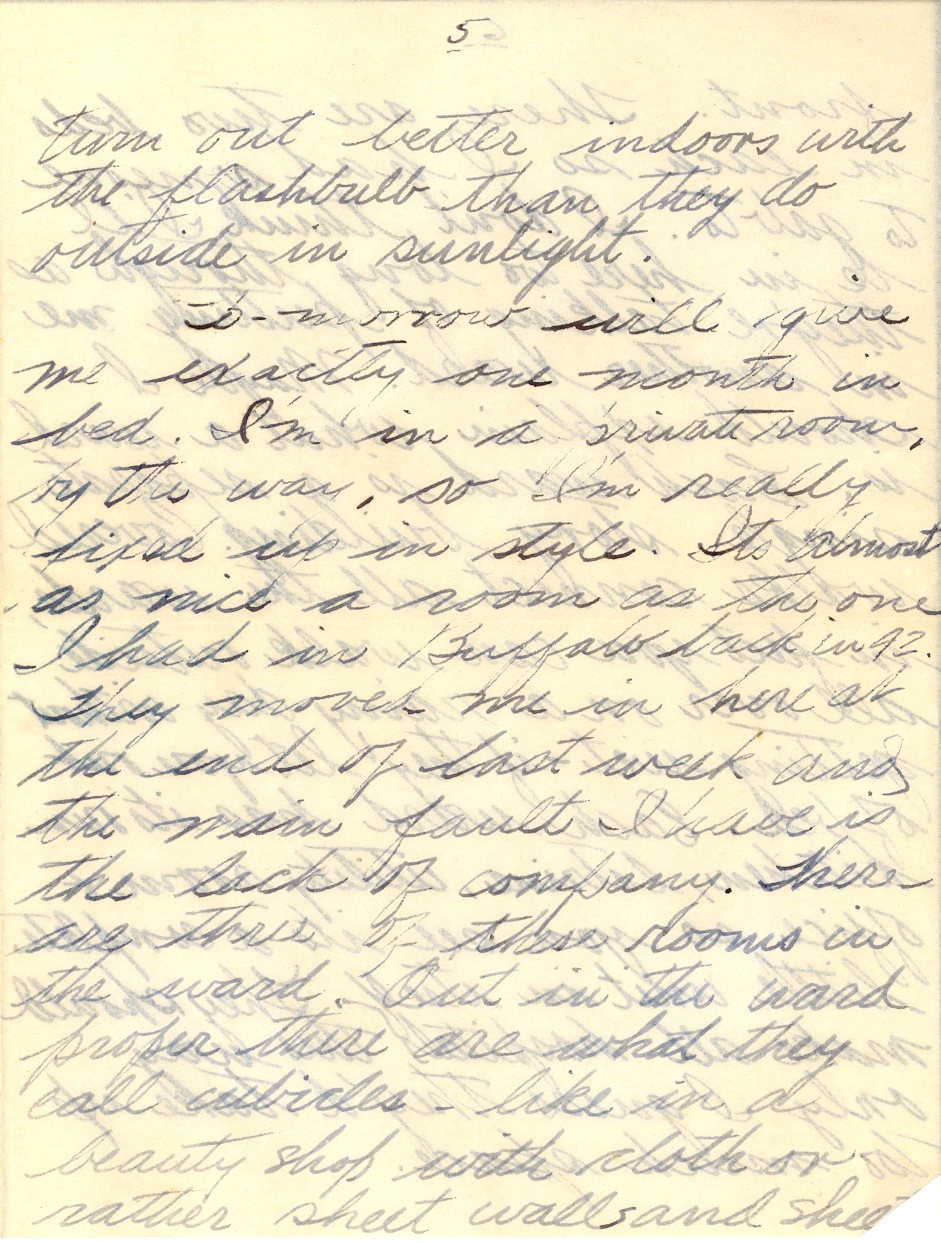 5
turn out better indoors with
the flashbulb than they do
outside in sunlight.
To-morrow will give
me exactly one month in
bed. I'm in a private room,
by the way, so I'm really
fixed up in style. Its almost
as nice a room as the one
I had in Buffalo back in 42.
They moved me in here at
the end of last week and
the main fault I have is
the lack of company. There
are three of these rooms in
the ward. Out in the ward
proper there are what they
call cubicles - like in a
beauty shop with cloth or
rather sheet walls and sheet